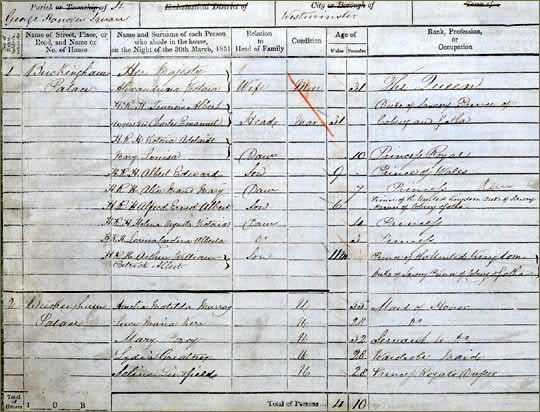 Parish or Township of St
George Hanover Square
Ecclesiastical District of
City or Borough of
Westminster
Town of
Name of Street, Place, or Road, and Name or No. of House
Name and Surname of each Person who abode in the house, on the Night of the 30th March, 1851
Relation to Head of Family
Condition
Age of
Males Females
Rank, Profession, or Occupation
1 Buckingham Her Majesty
Palace Alexandrina Victoria Wife Mar 31 The Queen
H R H Francis Albert Duke of Saxony Prince of
Augustus Charles Emanuel Head Mar 31 Coburg and Gotha
H R H Victoria Adelaide
Mary Louisa Daur 10 Princess Royal
H R H Albert Edward Son 9 Prince of Wales
H R H Alice Maud Mary Daur 7 Princess
H R H Alfred Ernest Albert Son 6 Prince of the United Kingdom Duke of Saxony Prince of Coburg Gotha
H R H Helena Augusta Victoria Daur 4 Princess
H R H Louisa Carolina Alberta Do 3 Princess
H R H Arthur William Son Prince of the United Kingdom
Patrick Albert Duke of Saxony Prince of Coburg Gotha
2 Buckingham Amelia Matilda Murray U Maid of Honor
Palace Lucy Maria Kerr U 28 Do
Mary U 32 Servant to Do
Lydia U 28 Wardrobe Maid
Selina U 28 Princess Royal's Dresser
Total of Houses I U B
Total of Persons 4 10